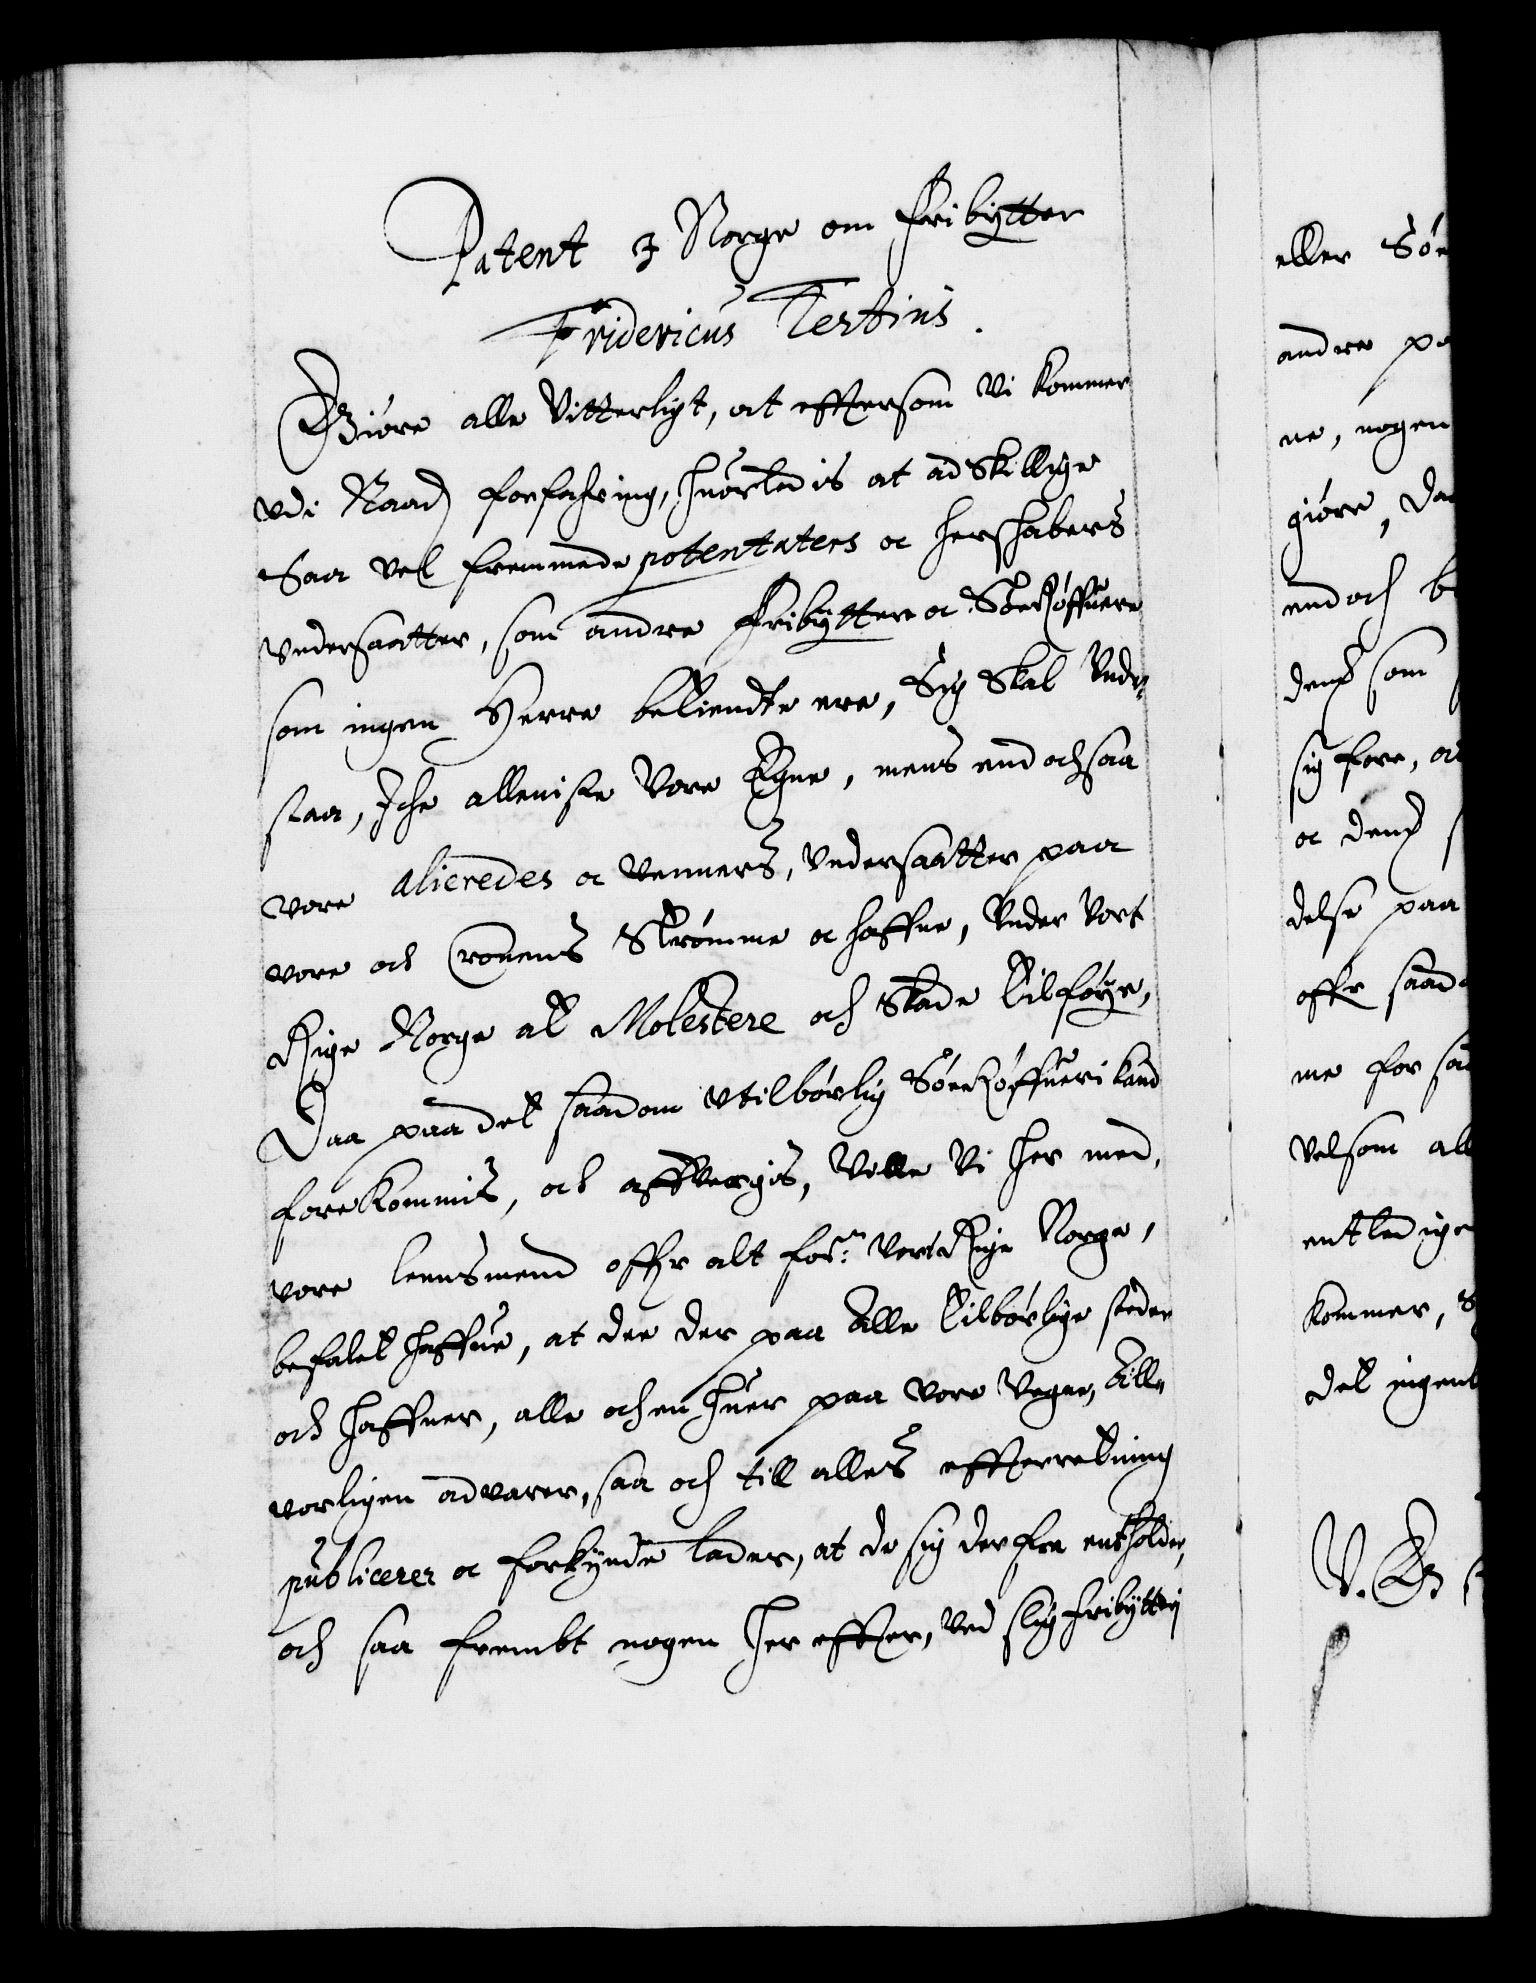 Patent J Norge om Fribytter
Fridericus Tertius.
Giøre alle Vitterligt, at effttersom Vi kommer
vdi Naadj forfahring, huorledis at adskillige
Saa vel fremmede potentaters oc herschabers
vndersaatter, som andre Fribyttere oc Søerøffuere
som ingen Herre bekiendte ere, Sig skal Vnder
staa, Iche alleniste Vore Egne, mens end ochsaa
vore alieredes oc venners, vndersaatter paa
vore och Cronens Strømme oc haffne, Vnder Vort
Rige Norge at Molestere och skade tilføye,
Daa paa det saadan vtilbørlig Søerøffueri kand
forekommis, och affvergis, Ville Vi her med,
vore lensmend offr alt for.ne Vort Rige Norge,
befalet haffue, at dee der paa alle tilbørlige steder
och haffner, alle och en huer paa vore Vegne, all-
vorligen advarer, saa och till alles effterretning
publicerer oc forkynde lader, at de sig der fra entholder,
och saa frembt nogen her effter, ved slig fribytteri
eller Søe
andre pa
ne, nogen
giøre, da
end och b
dend som
sig fore, oc
oc dend s
delse paa
offr saad
me for saa
velsom all
entledige
kommer, S
det ingen
V. G.